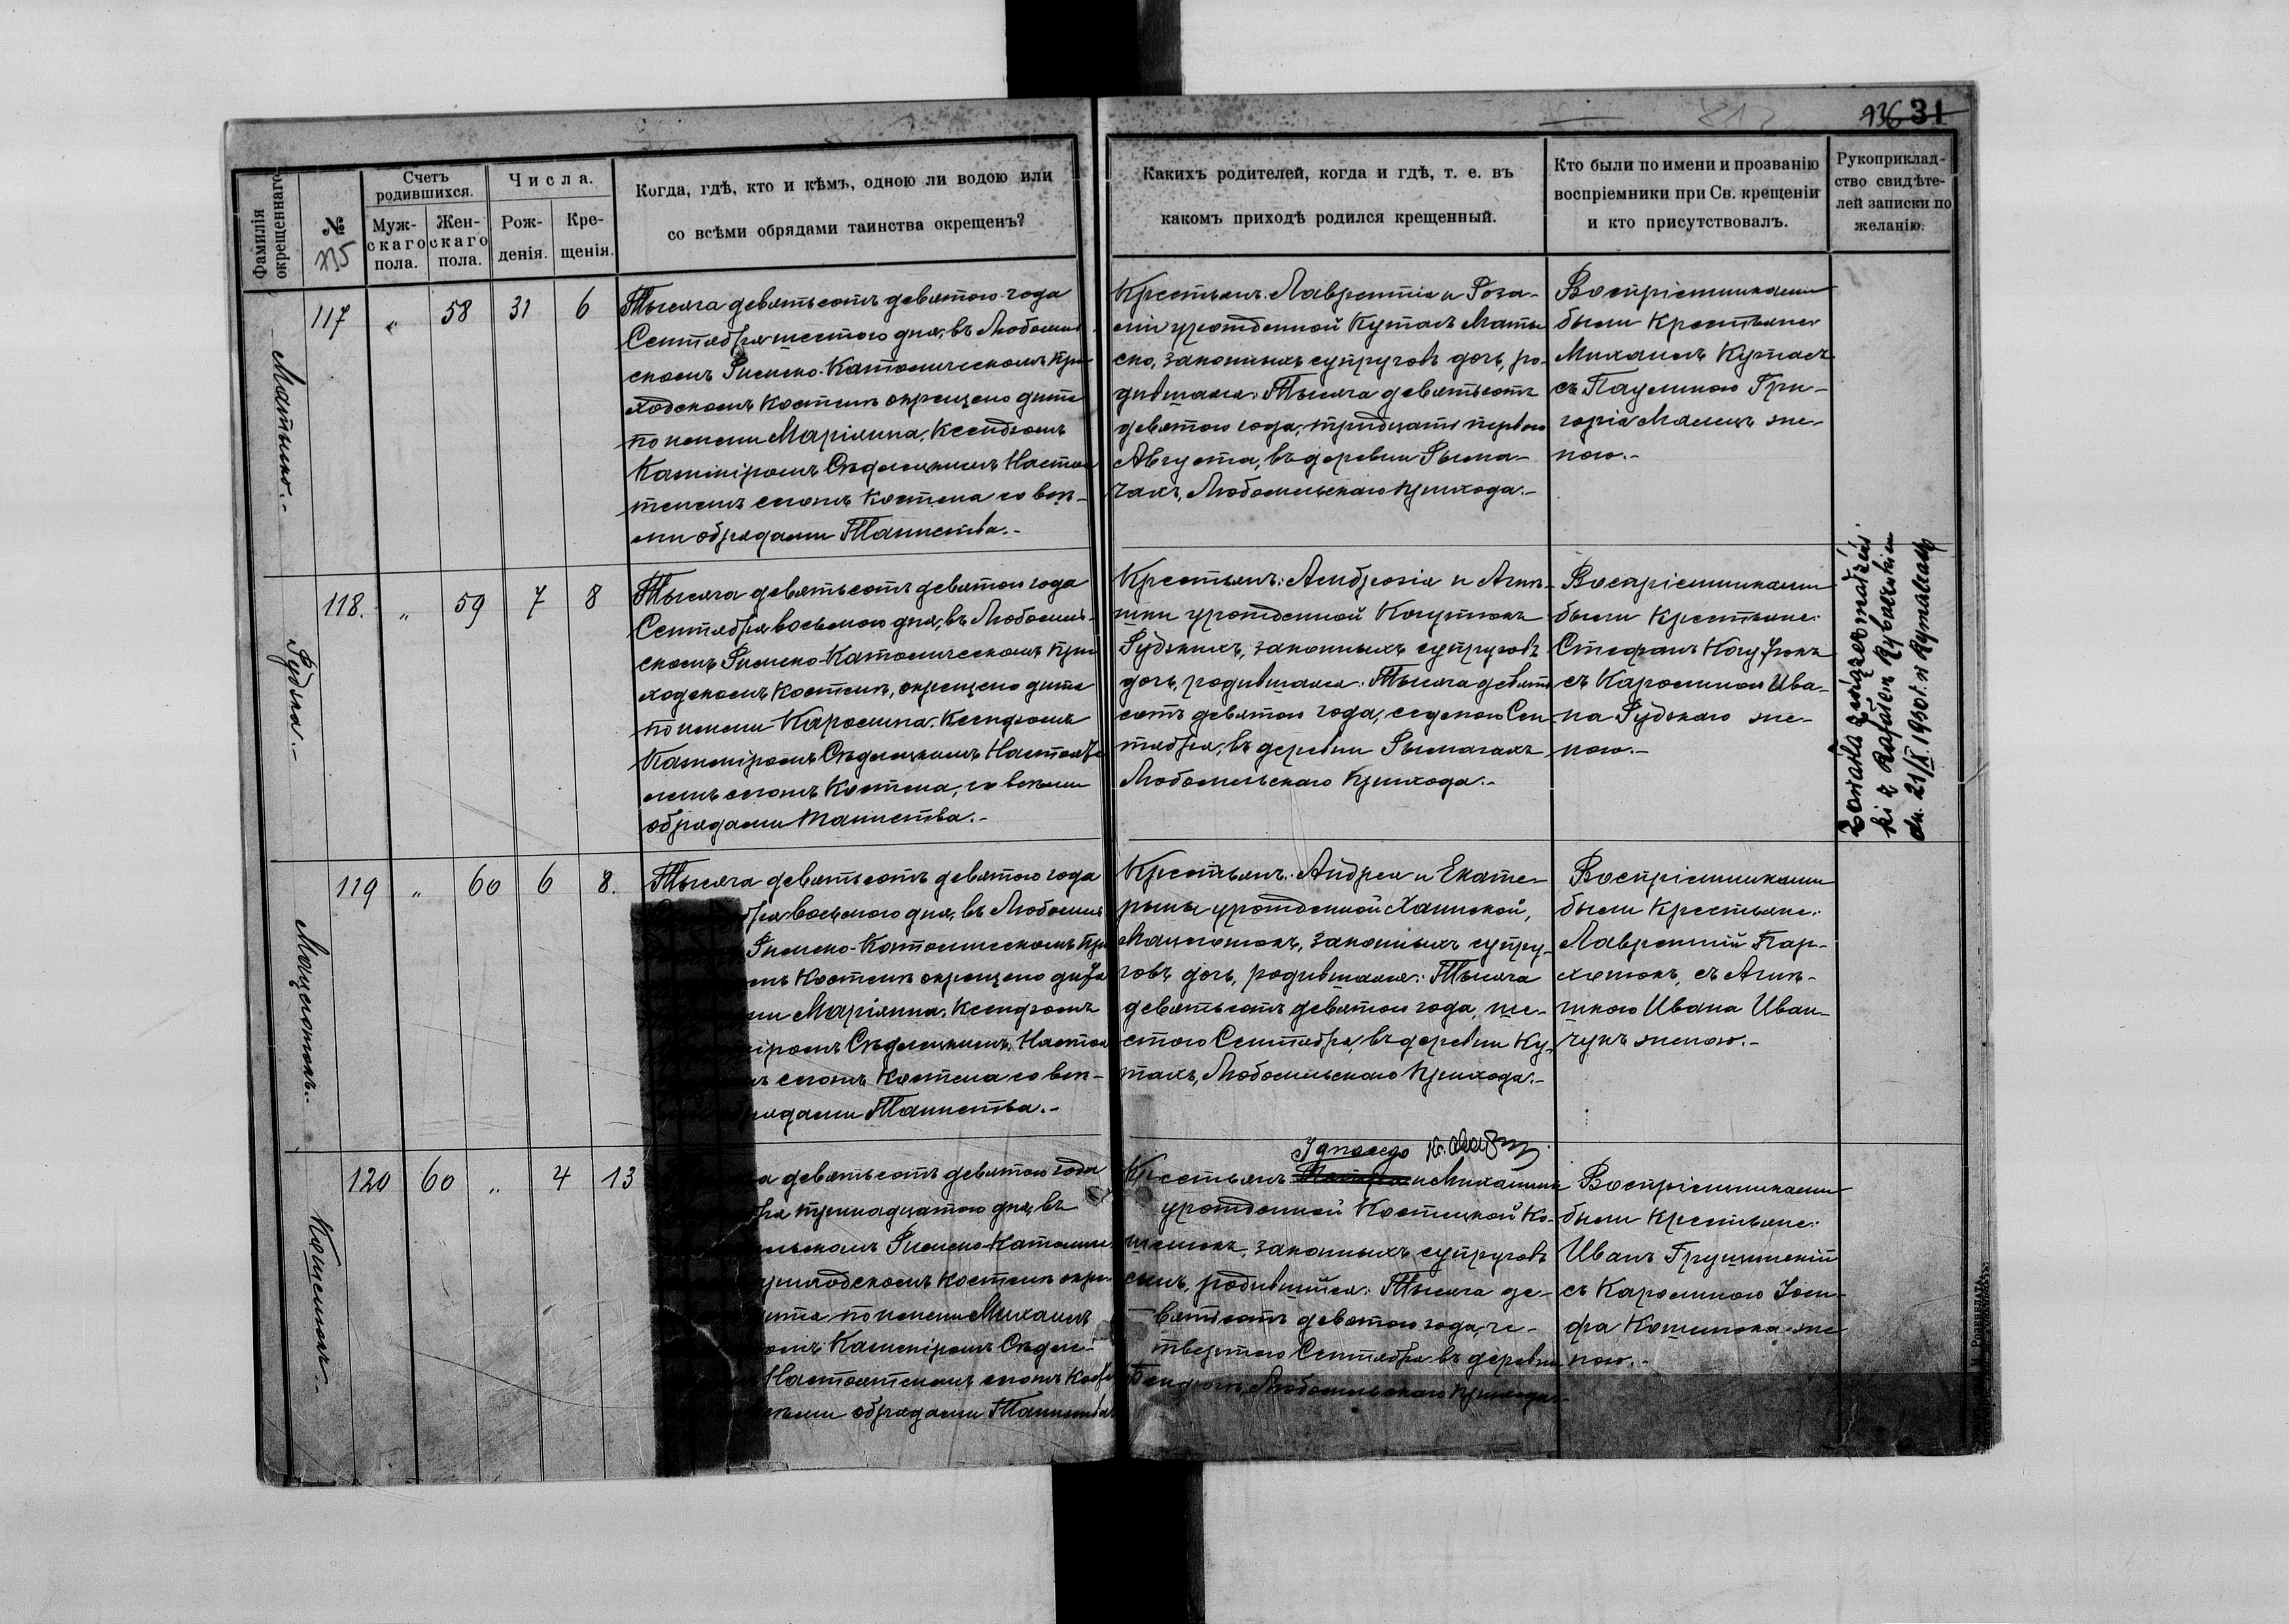 136 31
Фамилія окрещеннаго.
№
135
Счетъ родившихся.
Муж-скаго пола.
Жен-скаго пола.
Числа.
Рож-денія.
Кре-щенія.
Когда, гдѣ, кто и кѣмъ, одною ли водою или
со всѣми обрядами таинства окрещенъ?
Какихъ родителей, когда и гдѣ, т. е. въ
какомъ приходѣ родился крещенный.
Кто были по имени и прозванію
воспріемники при Св. крещеніи
и кто присутствовалъ.
Рукоприклад-
ство свидѣте-
лей записки по
желанію.
Матыско.-
117 " 58 31 6
Тысяча девятьсотъ девятого года
Сентября шестого дня, въ Любомль-
скомъ Римско-Католическомъ При-
ходскомъ Костелѣ окрещено дитя
по имени Маріянна, Ксендзомъ
Казиміромъ Сѣдлецкимъ Настоя
телемъ сего костела со всѣ-
ми обрядами Таинства.-
Крестьянъ: Лаврентія и Роза-
ліи урожденной Куталъ Маты
ско, законныхъ супруговъ дочь, ро-
дившаяся: Тысяча девятьсотъ
девятого года, тридцать первого
Августа, въ деревни Рыма-
чахъ, Любомльскаго прихода.-
Воспріемниками
были Крестьяне:
Михаилъ Куталъ
съ Паулиною Гри-
горія Малецъ же-
ною.-
Рудька.-
118. " 59 7 8
Тысяча девятьсотъ девятого года
Сентября восьмого дня, въ Любомль-
скомъ Римско-Католическомъ При
ходскомъ Костелѣ, окрещено дитя
по имени Каролина, Ксендзомъ
Казиміромъ Сѣдлецкимъ Настояте
лемъ сего Костела, со всѣми
обрядами таинства.-
Крестьянъ: Амброзія и Агнѣ-
шки урожденной Коцюпокъ
Рудькихъ, законныхъ супруговъ
дочь, родившаяся: Тысяча девять
сотъ девятого года, седьмого Сен
тября, въ деревни Рымачахъ
Любомльскаго прихода.-
Воспріемниками
были Крестьяне:
Стефанъ
съ Каролиною Ива-
на Рудькаго же-
ною.-
małżeń
ki z Rafałem
dn. 21/IX. 1930 r. w Rymaczach
119 " 60 6 8.
Тысяча девятьсотъ девятого года
бря восьмого дня, въ Любомль
Римско-Католическомъ При
мъ Костелѣ окрещено дитя
ни Маріянна, Ксендзомъ
іромъ Сѣдлецкимъ, Настоя
ъ сего Костела со всѣ-
рядами Таинства.-
Крестьянъ: Андрея и Екате-
рины урожденной
законныхъ супру-
говъ дочь, родившаяся: Тысяча
девятьсотъ девятого года, ше-
стого Сентября, въ деревни Ку-
тахъ, Любомльскаго прихода.-
Воспріемниками
были Крестьяне:
Лаврентій Пар-
хомюкъ, съ Агнѣ-
шкою Ивана Иван-
чукъ женою.-
Кошелюкъ.-
120 60 " 4 13
а девятьсотъ девятого года
бря тринадцатого дня, въ
льскомъ Римско-Католиче
риходскомъ Костелѣ окре
итя по имени Михаилъ
омъ Казиміромъ Сѣдле-
Настоятелемъ сего Косте
сѣми обрядами Таинства
Ignacego
Крестьянъ и Михалины
урожденной Костецкой Ко-
шелюкъ, законныхъ супруговъ
сынъ, родившійся: Тысяча де-
вятьсотъ девятого года, че-
твертого Сентября въ деревни
Любомльскаго прихода.-
Воспріемниками
были Крестьяне:
Иванъ
съ Каролиною Іоси-
фа Кошелюка же
ною.-